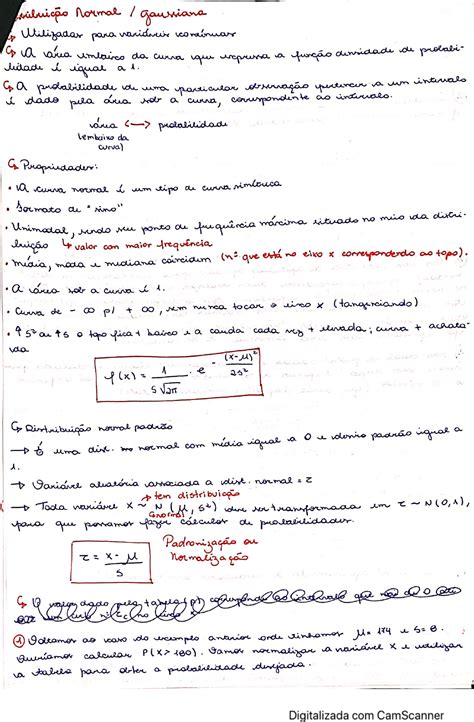 Distribuição Normal / gaussiana
→ Utilizadas para variáveis contínuas
↳ A área embaixo da curva que representa a função densidade de probabi-
lidade é igual a 1.
↳ A probabilidade de uma particular observação pertencer a um intervalo
é dado pela área sob a curva, correspondente ao intervalo.
área ↔ probabilidade
(embaixo da
curva)
↳ Propriedades:
• A curva normal é um tipo de curva simétrica
• Formato de "sino"
• Unimodal, sendo seu ponto de frequência máxima situado no meio da distri-
buição ↳ valor com maior frequência
• Média, moda e mediana coincidem (nº que está no eixo x correspondendo ao topo).
• A área sob a curva é 1.
• Curva de - ∞ p/ + ∞, sem nunca tocar o eixo x (tangenciando)
• ↑ s² ou ↑ s o topo fica + baixo e a cauda cada vez + elevada; curva + achata-
da
f(x) = 1 / s√2π . e^ - (x-μ)² / 2s²
↳ Distribuição normal padrão
→ É uma dist. normal com média igual a 0 e desvio padrão igual a
1.
→ Variável aleatória associada a dist. normal = z
↗ tem distribuição
→ Toda variável x ~ N (μ, s²) deve ser transformada em z ~ N(0,1),
↳ normal
para que possamos fazer cálculos de probabilidades.
z = x - μ / s
Padronização ou
Normalização
↳ O valor dado pela tabela (p) corresponde ao intervalo que vai de 0 até
① Voltamos ao caso do exemplo anterior onde tínhamos μ = 174 e s = 8.
Queríamos calcular P(X > 180). Vamos normalizar a variável X e utilizar
a tabela para obter a probabilidade desejada.
Digitalizada com CamScanner